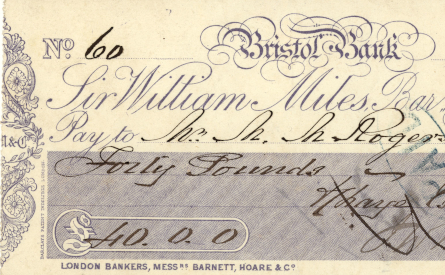 No. 60 Bristol Bank
Sir William Miles, Bar
& Co
Pay to Mr. M. M. Roger
Forty Pounds
£ 40. 0. 0
LONDON BANKERS, MESSRS BARNETT, HOARE & Co